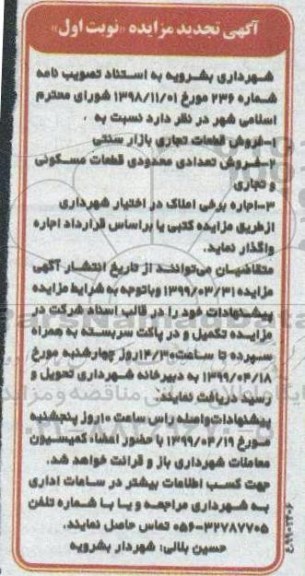 آگهی تجدید مزایده «نوبت اول»
شهرداری بشرویه به استناد تصویب نامه
شماره ۲۳۶ مورخ ۱۳۹۸/۱۱/۰۱ شورای محترم
اسلامی شهر در نظر دارد نسبت به ،
۱-فروش قطعات تجاری بازار سنتی
۲-فروش تعدادی محدودی قطعات مسکونی
و تجاری
۳-اجاره برخی املاک در اختیار شهرداری
ازطریق مزایده کتبی یا براساس قرارداد اجاره
واگذار نماید.
متقاضیان می‌توانند از تاریخ انتشار آگهی
مزایده ۱۳۹۹/۰۳/۳۱ وباتوجه به شرایط مزایده
پیشنهادات خود را در قالب اسناد شرکت در
مزایده تکمیل و در پاکت سربسته به همراه
سپرده تا ساعت۱۴/۳۰روز چهارشنبه مورخ
۱۳۹۹/۰۴/۱۸ به دبیرخانه شهرداری تحویل و
رسید دریافت نمایند.
پیشنهادات‌واصله راس ساعت ۱۰روز پنجشنبه
مورخ ۱۳۹۹/۰۴/۱۹ با حضور اعضاء کمیسیون
معاملات شهرداری باز و قرائت خواهد شد.
جهت کسب اطلاعات بیشتر در ساعات اداری
به شهرداری مراجعه و یا با شماره تلفن
۰۵۶-۳۲۷۸۷۷۰۵ تماس حاصل نمایند.
حسین بلالی: شهردار بشرویه